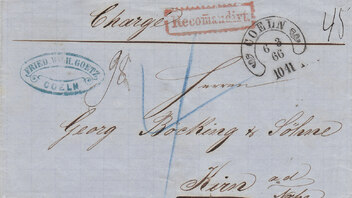 Chargé
Recomandirt.
45
COELN
6 3
66
10-11
FRIED. WILH. GOETZ
COELN
98
Herren
Georg Böcking & Söhne
Kirn a.d.
Nahe